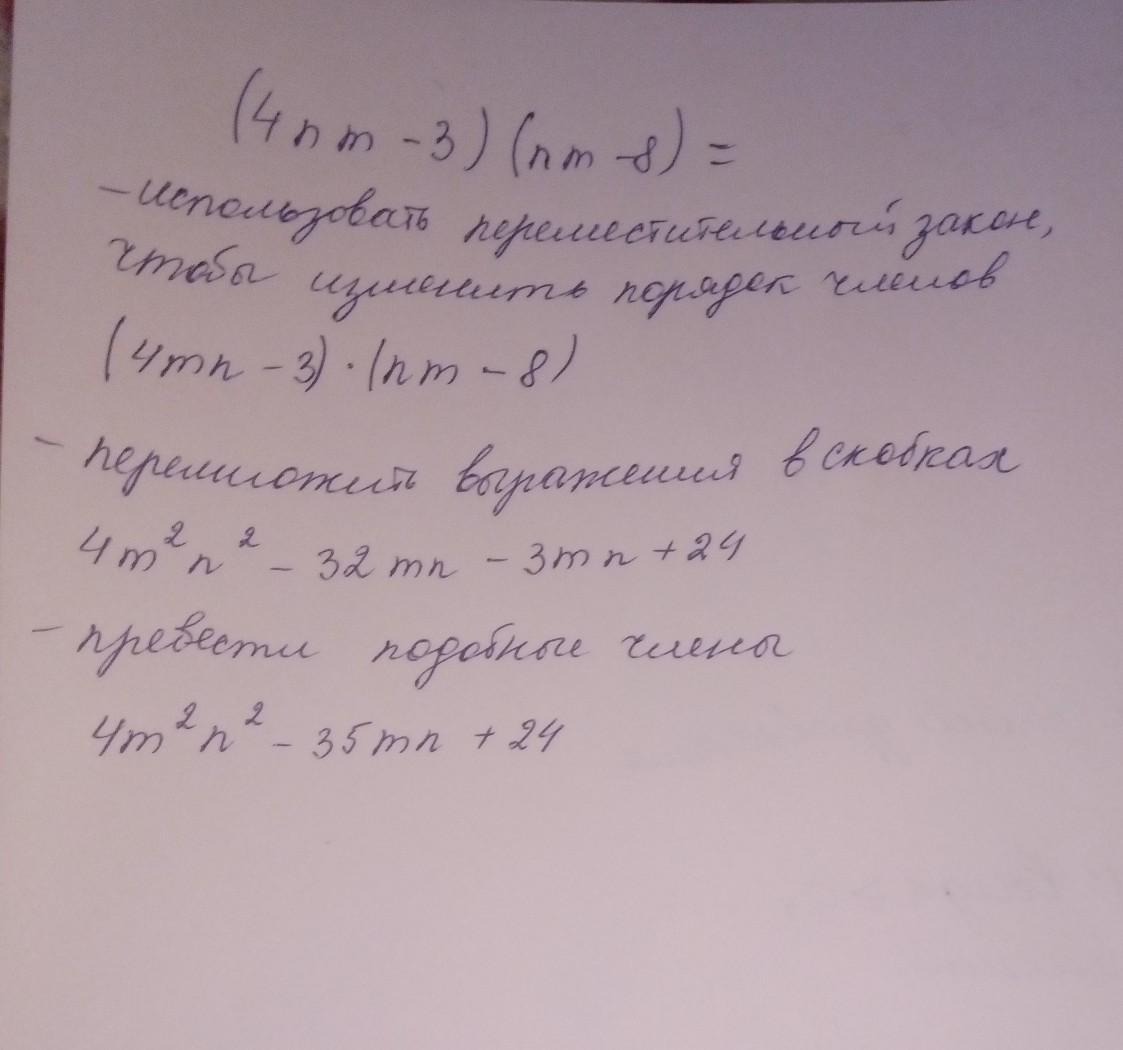 (4nm - 3)(nm - 8) =
- использовать переместительный закон,
чтобы изменить порядок членов
(4mn - 3) · (nm - 8)
- перемножить выражения в скобках
4m²n² - 32mn - 3mn + 24
- превести подобные члены
4m²n² - 35mn + 24